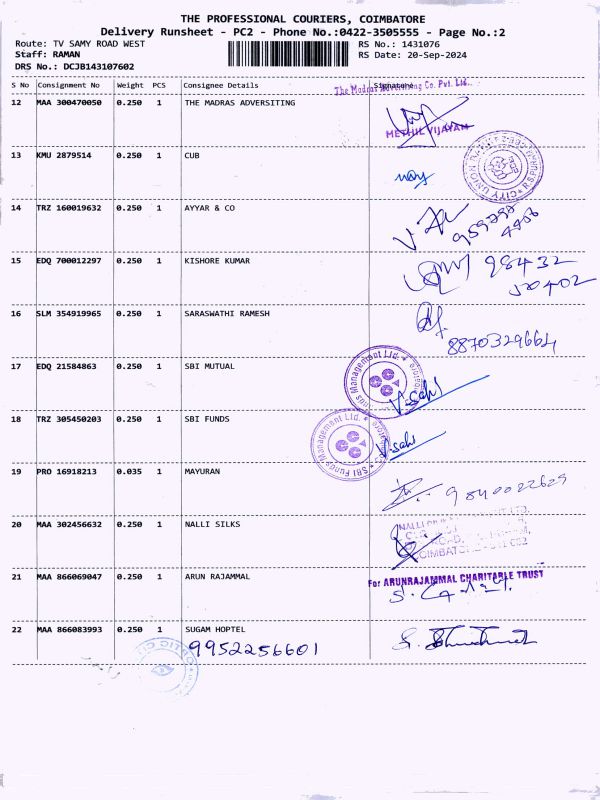 THE PROFESSIONAL COURIERS, COIMBATORE
Delivery Runsheet - PC2 - Phone No.:0422-3505555 - Page No.:2
Route: TV SAMY ROAD WEST RS No.: 1431076
Staff: RAMAN RS Date: 20-Sep-2024
DRS No.: DCJB143107602
S No Consignment No Weight PCS Consignee Details Signature
The Madras Advertising Co. Pvt. Ltd.
12 MAA 300470050 0.250 1 THE MADRAS ADVERSITING
METHIL VIJAYAN
13 KMU 2879514 0.250 1 CUB
14 TRZ 160019632 0.250 1 AYYAR & CO
15 EDQ 700012297 0.250 1 KISHORE KUMAR
98432
16 SLM 354919965 0.250 1 SARASWATHI RAMESH
8870329664
17 EDQ 21584863 0.250 1 SBI MUTUAL
18 TRZ 305450203 0.250 1 SBI FUNDS
SBI Funds Management Ltd.
19 PRO 16918213 0.035 1 MAYURAN
9840022629
20 MAA 302456632 0.250 1 NALLI SILKS
21 MAA 866069047 0.250 1 ARUN RAJAMMAL
For ARUNRAJAMMAL CHARITABLE TRUST
22 MAA 866083993 0.250 1 SUGAM HOPTEL
9952256601